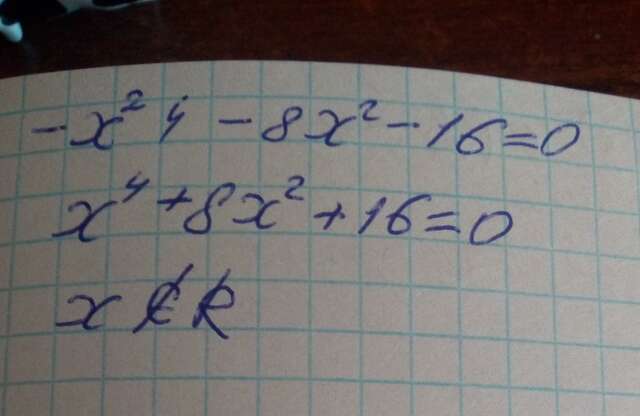 -x² 4 - 8x² - 16 = 0
x⁴ + 8x² + 16 = 0
x ∉ R